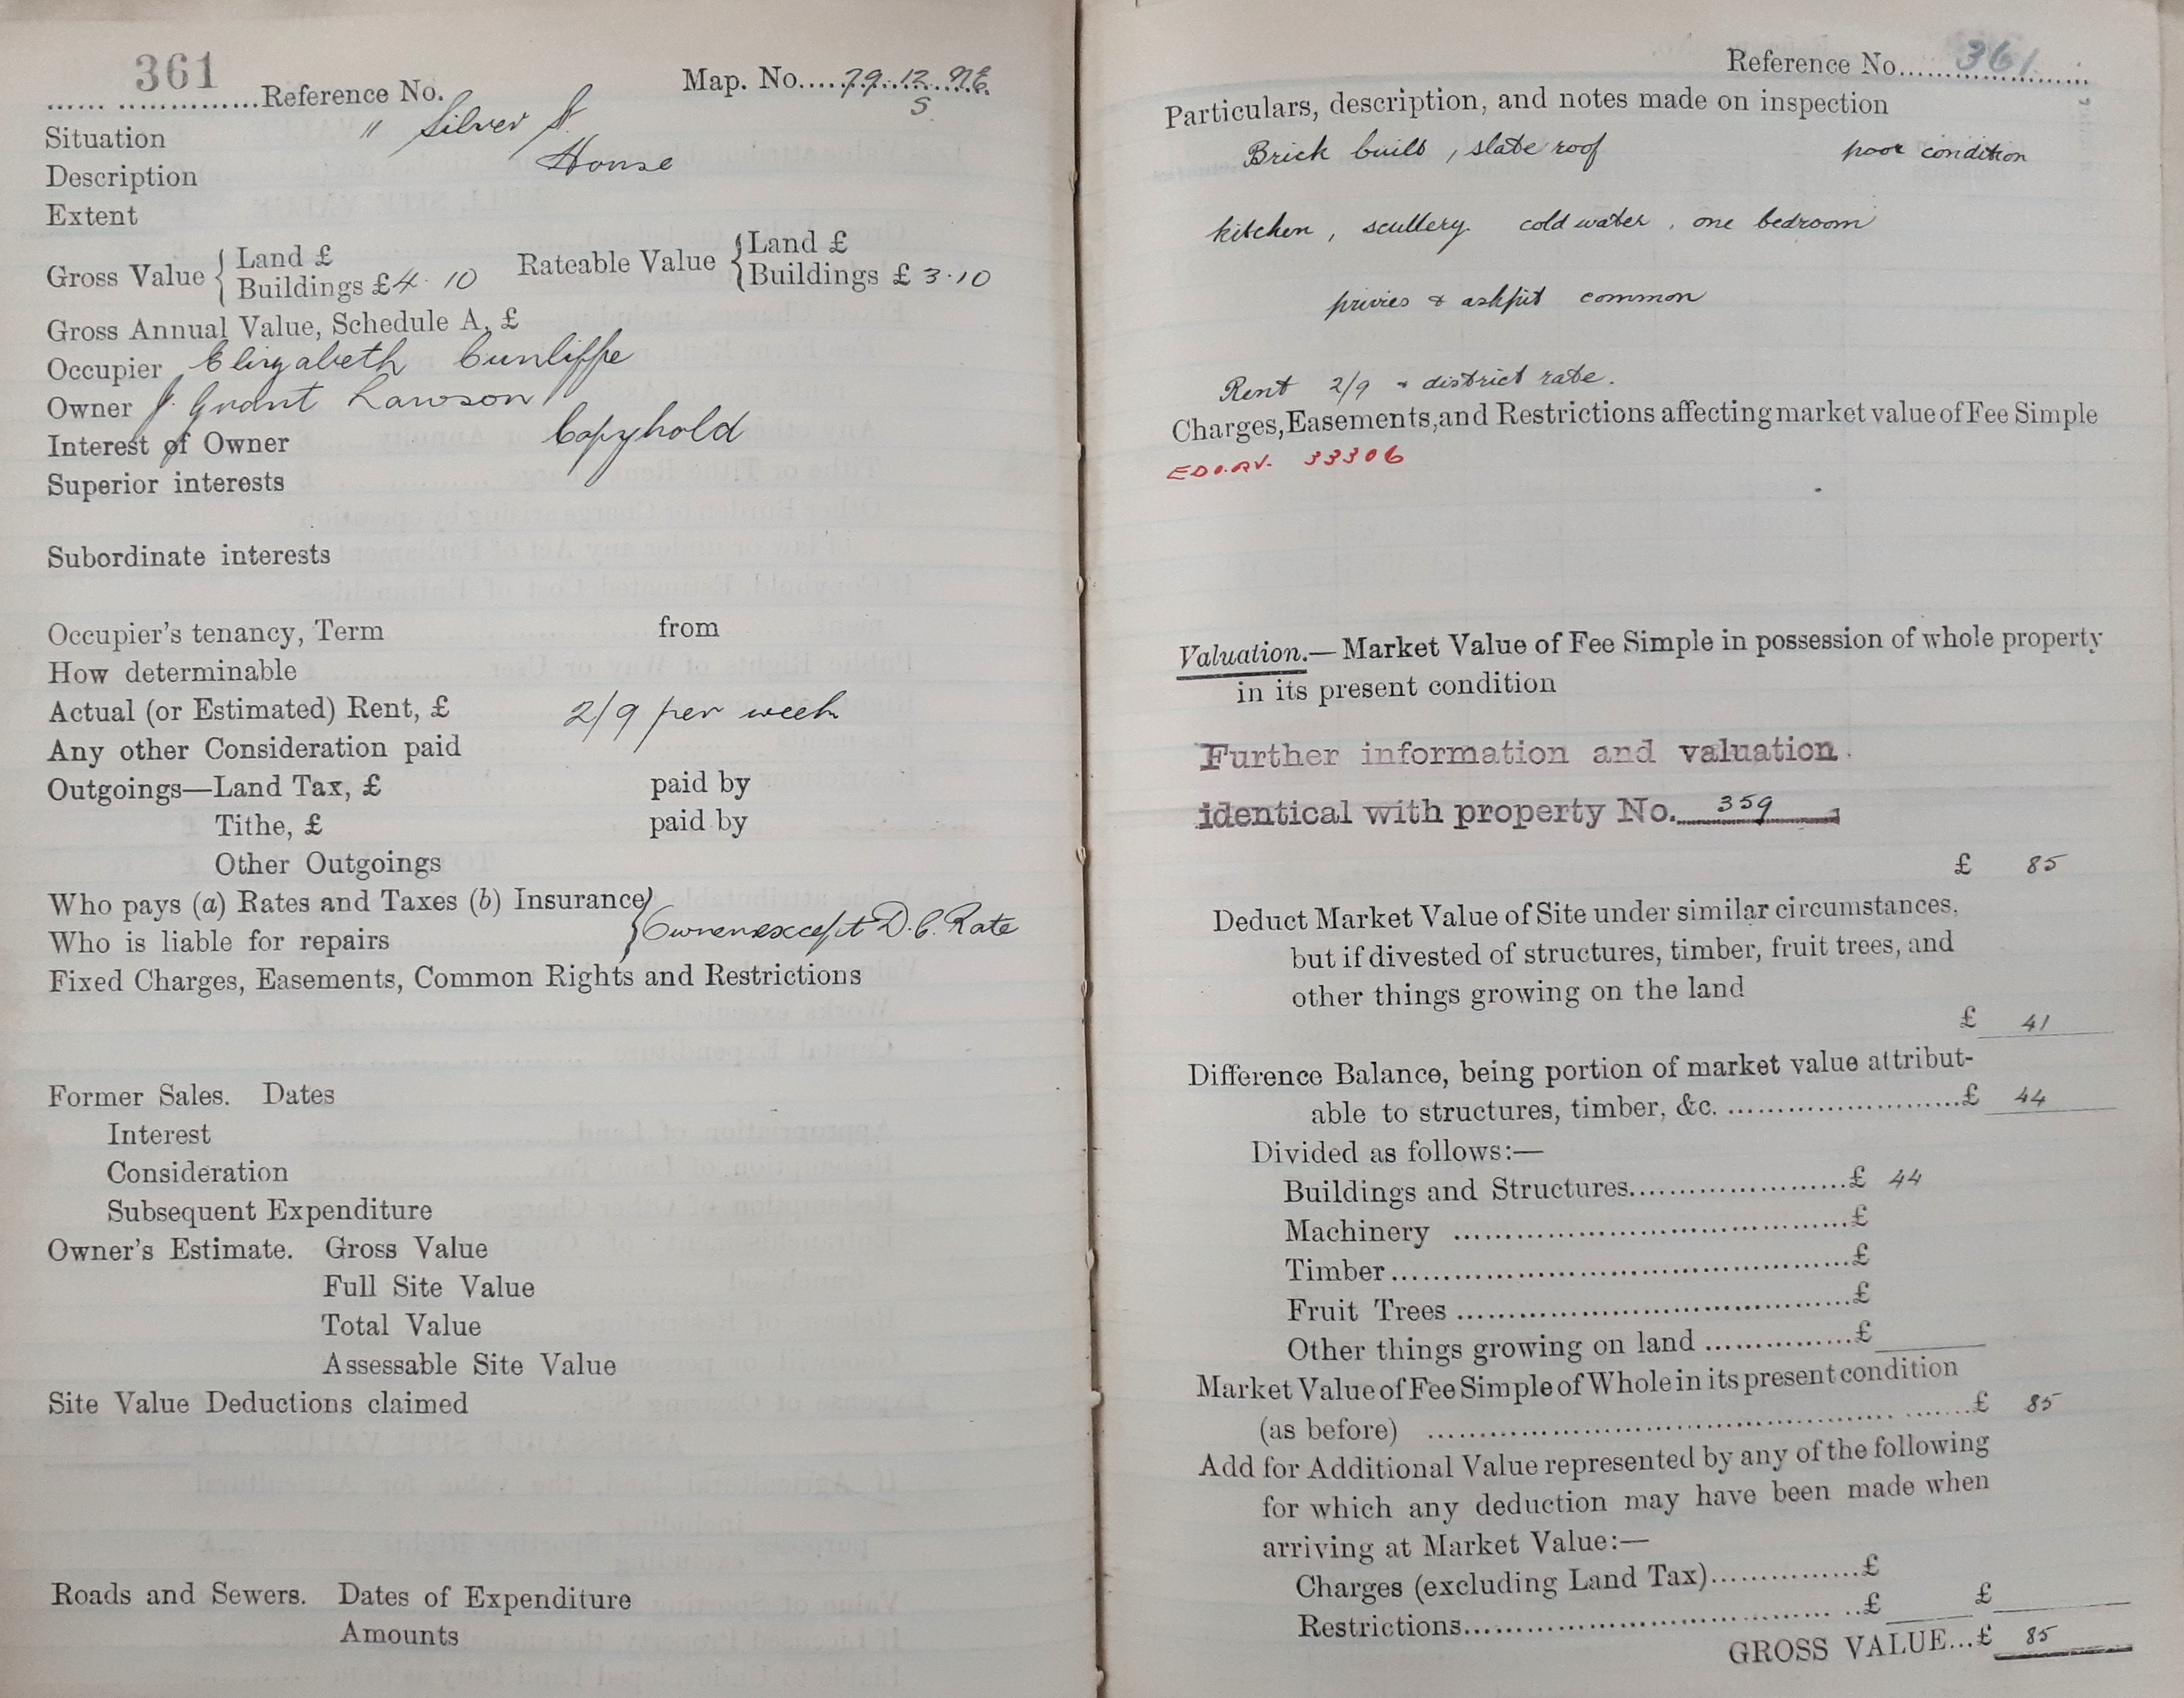 361
Reference No. Map. No. 79. 12. 9/6.
S.
Situation " Silver St.
Description House
Extent
Gross Value { Land £
Buildings £ 4. 10
Rateable Value { Land £
Buildings £ 3.10
Gross Annual Value, Schedule A, £
Occupier Elizabeth Cunliffe
Owner J. Grant Lawson
Interest of Owner Copyhold
Superior interests
Subordinate interests
Occupier's tenancy, Term from
How determinable
Actual (or Estimated) Rent, £ 2/9 per week
Any other Consideration paid
Outgoings—Land Tax, £ paid by
Tithe, £ paid by
Other Outgoings
Who pays (a) Rates and Taxes (b) Insurance }
Who is liable for repairs } Owner except D. C. Rate
Fixed Charges, Easements, Common Rights and Restrictions
Former Sales. Dates
Interest
Consideration
Subsequent Expenditure
Owner's Estimate. Gross Value
Full Site Value
Total Value
Assessable Site Value
Site Value Deductions claimed
Roads and Sewers. Dates of Expenditure
Amounts
Reference No. 361
Particulars, description, and notes made on inspection
Brick built, slate roof poor condition
kitchen, scullery. cold water, one bedroom
privies & ashpit common
Rent 2/9 & district rate.
Charges, Easements, and Restrictions affecting market value of Fee Simple
33306
Valuation.—Market Value of Fee Simple in possession of whole property
in its present condition
Further information and valuation.
identical with property No. 359
£ 85
Deduct Market Value of Site under similar circumstances,
but if divested of structures, timber, fruit trees, and
other things growing on the land
£ 41
Difference Balance, being portion of market value attribut-
able to structures, timber, &c. £ 44
Divided as follows:—
Buildings and Structures £ 44
Machinery £
Timber £
Fruit Trees £
Other things growing on land £
Market Value of Fee Simple of Whole in its present condition
(as before) £ 85
Add for Additional Value represented by any of the following
for which any deduction may have been made when
arriving at Market Value:—
Charges (excluding Land Tax) £
Restrictions £ £
GROSS VALUE...£ 85